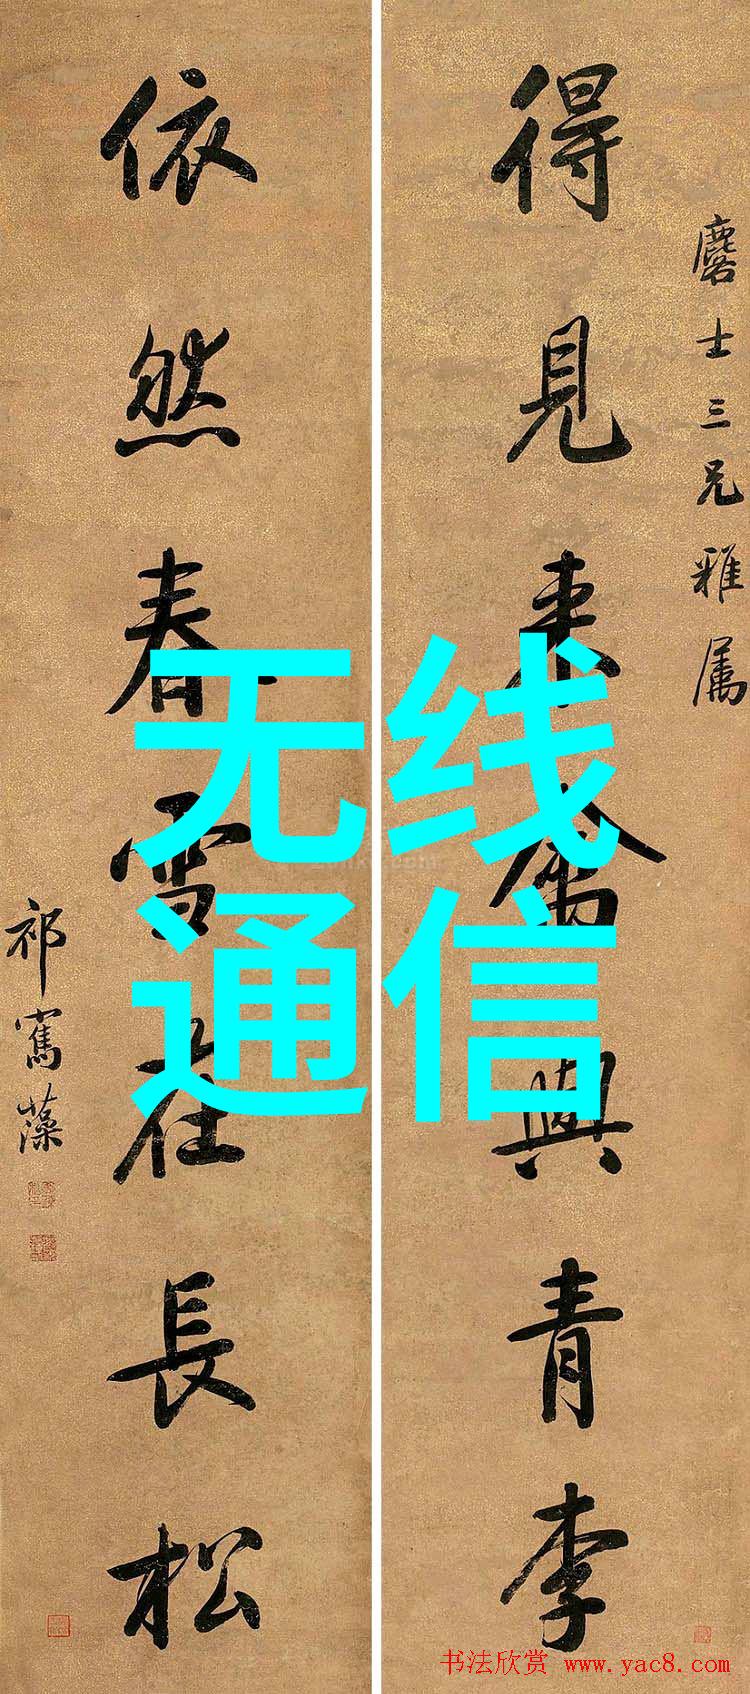 麐士三兄雅属
得見来禽與青李
依然春雪在長松
祁寯藻
无线
通信
书法欣赏 www.yac8.com